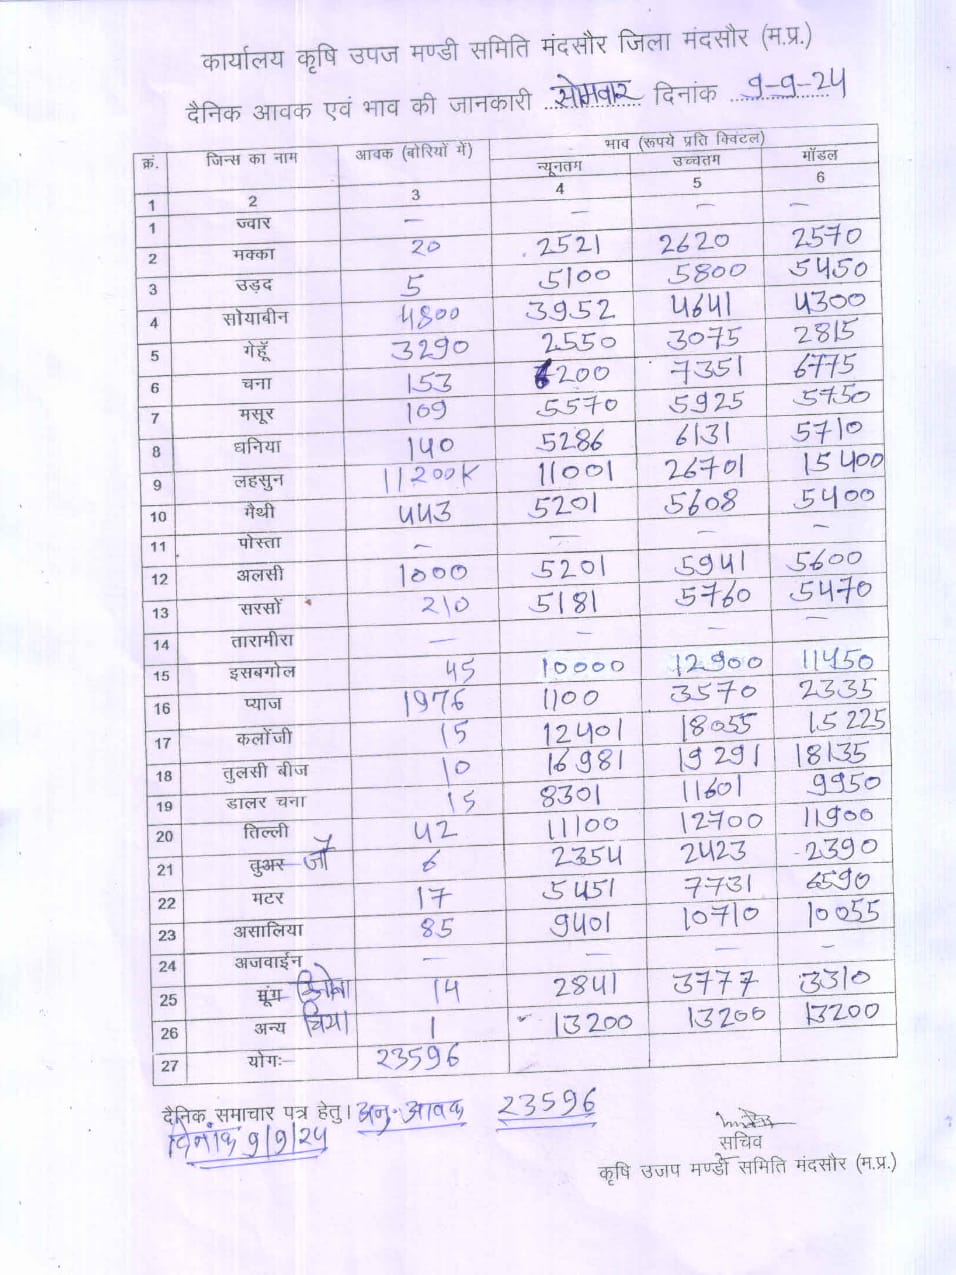 कार्यालय कृषि उपज मण्डी समिति मंदसौर जिला मंदसौर (म.प्र.)
दैनिक आवक एवं भाव की जानकारी सोमवार दिनांक 9-9-24
क्रं. जिन्स का नाम आवक (बोरियों में) भाव (रूपये प्रति क्विंटल)
न्यूनतम उच्चतम मॉडल
1 2 3 4 5 6
1 ज्वार — — — —
2 मक्का 20 2521 2620 2570
3 उड़द 5 5100 5800 5450
4 सोयाबीन 4800 3952 4641 4300
5 गेहूँ 3290 2550 3075 2815
6 चना 153 6200 7351 6775
7 मसूर 109 5570 5925 5750
8 धनिया 140 5286 6131 5710
9 लहसुन 11200K 11001 26701 15400
10 मैथी 443 5201 5608 5400
11 पोस्ता — — — —
12 अलसी 1000 5201 5941 5600
13 सरसों 210 5181 5760 5470
14 तारामीरा — — — —
15 इसबगोल 45 10000 12900 11450
16 प्याज 1976 1100 3570 2335
17 कलोंजी 15 12401 18055 15225
18 तुलसी बीज 10 16981 19291 18135
19 डालर चना 15 8301 11601 9950
20 तिल्ली 42 11100 12700 11900
21 तुअर जौ 6 2354 2423 2390
22 मटर 17 5451 7731 6590
23 असालिया 85 9401 10710 10055
24 अजवाईन — — — —
25 मूंग 14 2841 3777 3310
26 अन्य चिया 1 13200 13200 13200
27 योगः— 23596
दैनिक समाचार पत्र हेतु। अनु. आवक 23596
दिनांक 9/9/24
सचिव
कृषि उजप मण्डी समिति मंदसौर (म.प्र.)